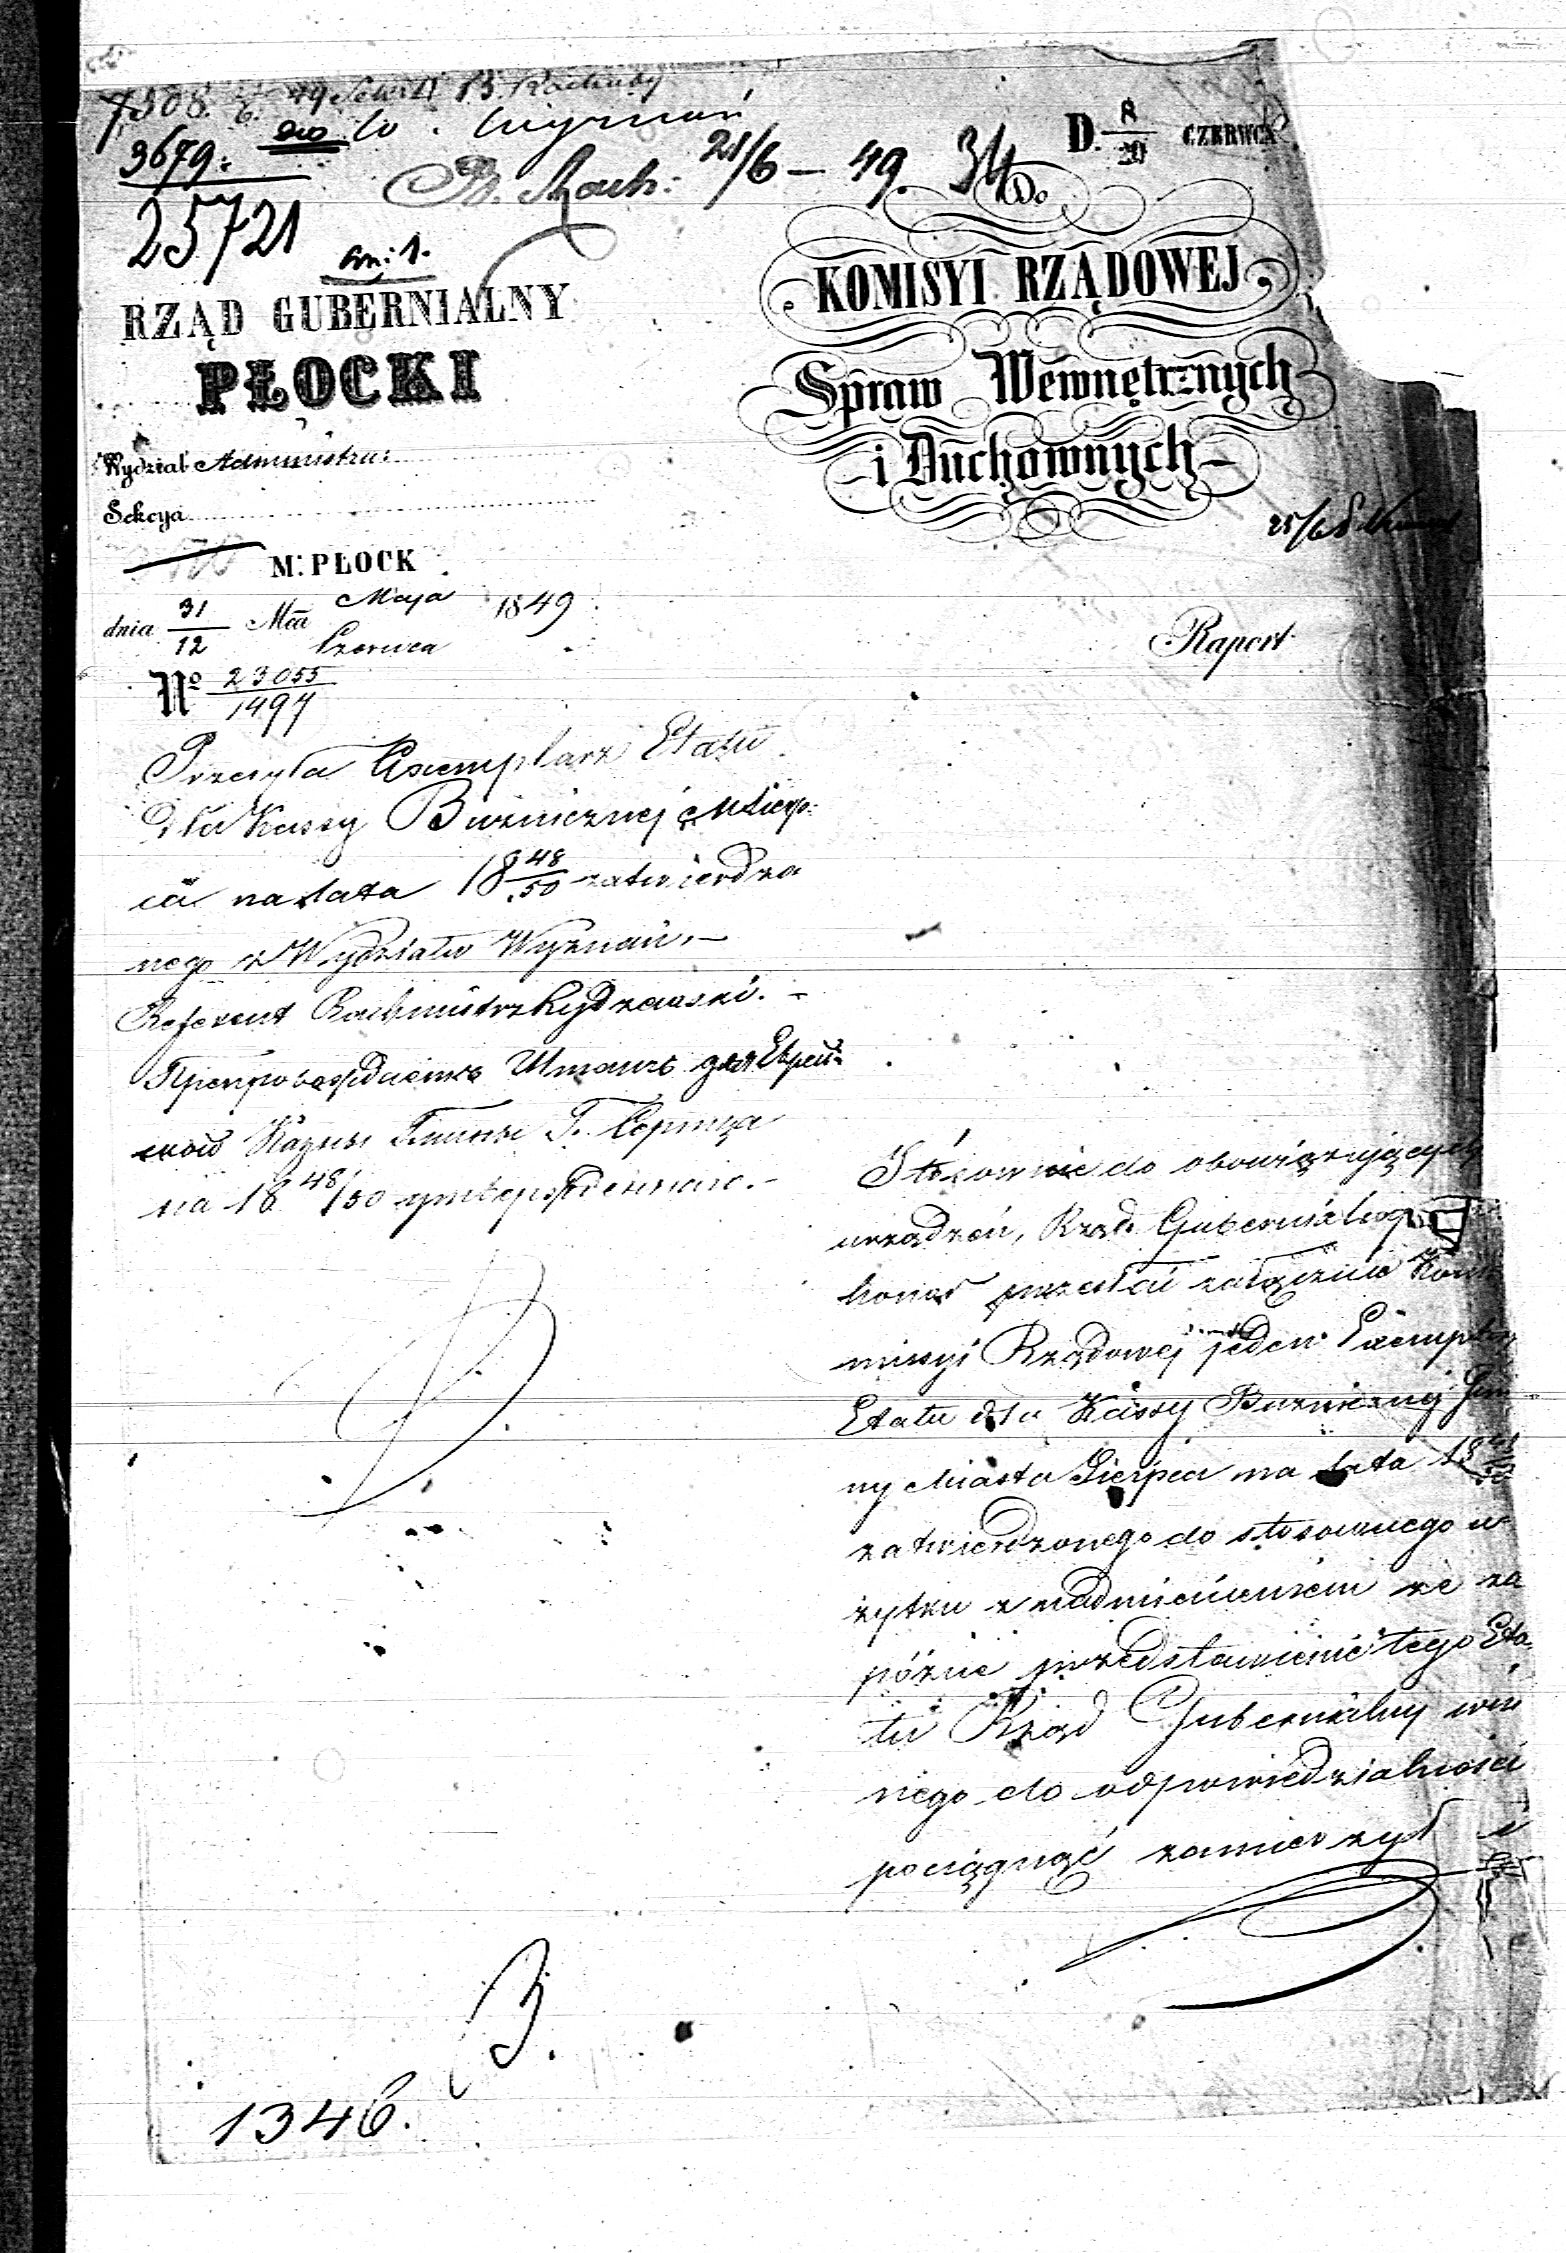 7308. 6. 49
do W. Wyznań
3679.
25721
21/6 – 49. 34
D. 8/20 CZERWCA
Do
KOMISYI RZĄDOWEJ
Spraw Wewnętrznych
i Duchownych
RZĄD GUBERNIALNY
PŁOCKI
Wydział Administra:
Sekcya
M. PŁOCK
dnia 31/12 Mca Maja/Czerwca 1849
No 23055/1497
Raport
Przesyła Exemplarz Etatu
dla Kassy Bużniczney M. Sierp-
ca na lata 18 48/50 zatwierdzo
nego z Wydziału Wyznań. –
Referent Rachmistrz
Штатъ для Еврей-
ской Кассы
на 18 48/50
Stósownie do obowiązujących
urządzeń, Rząd Gubernialny
honor przesłać załącznie Kom
missyi Rządowej jeden Exemplarz
Etatu dla Kassy Bużniczney Gmi
ny Miasta Sierpca na lata 18 48/50
zatwierdzonego do stosownego u
żytku z nadmienieniem że za
późne przedstawienie tego Eta-
tu Rząd Gubernialny win
nego do odpowiedzialności
pociągnąć zamierzył
1346.